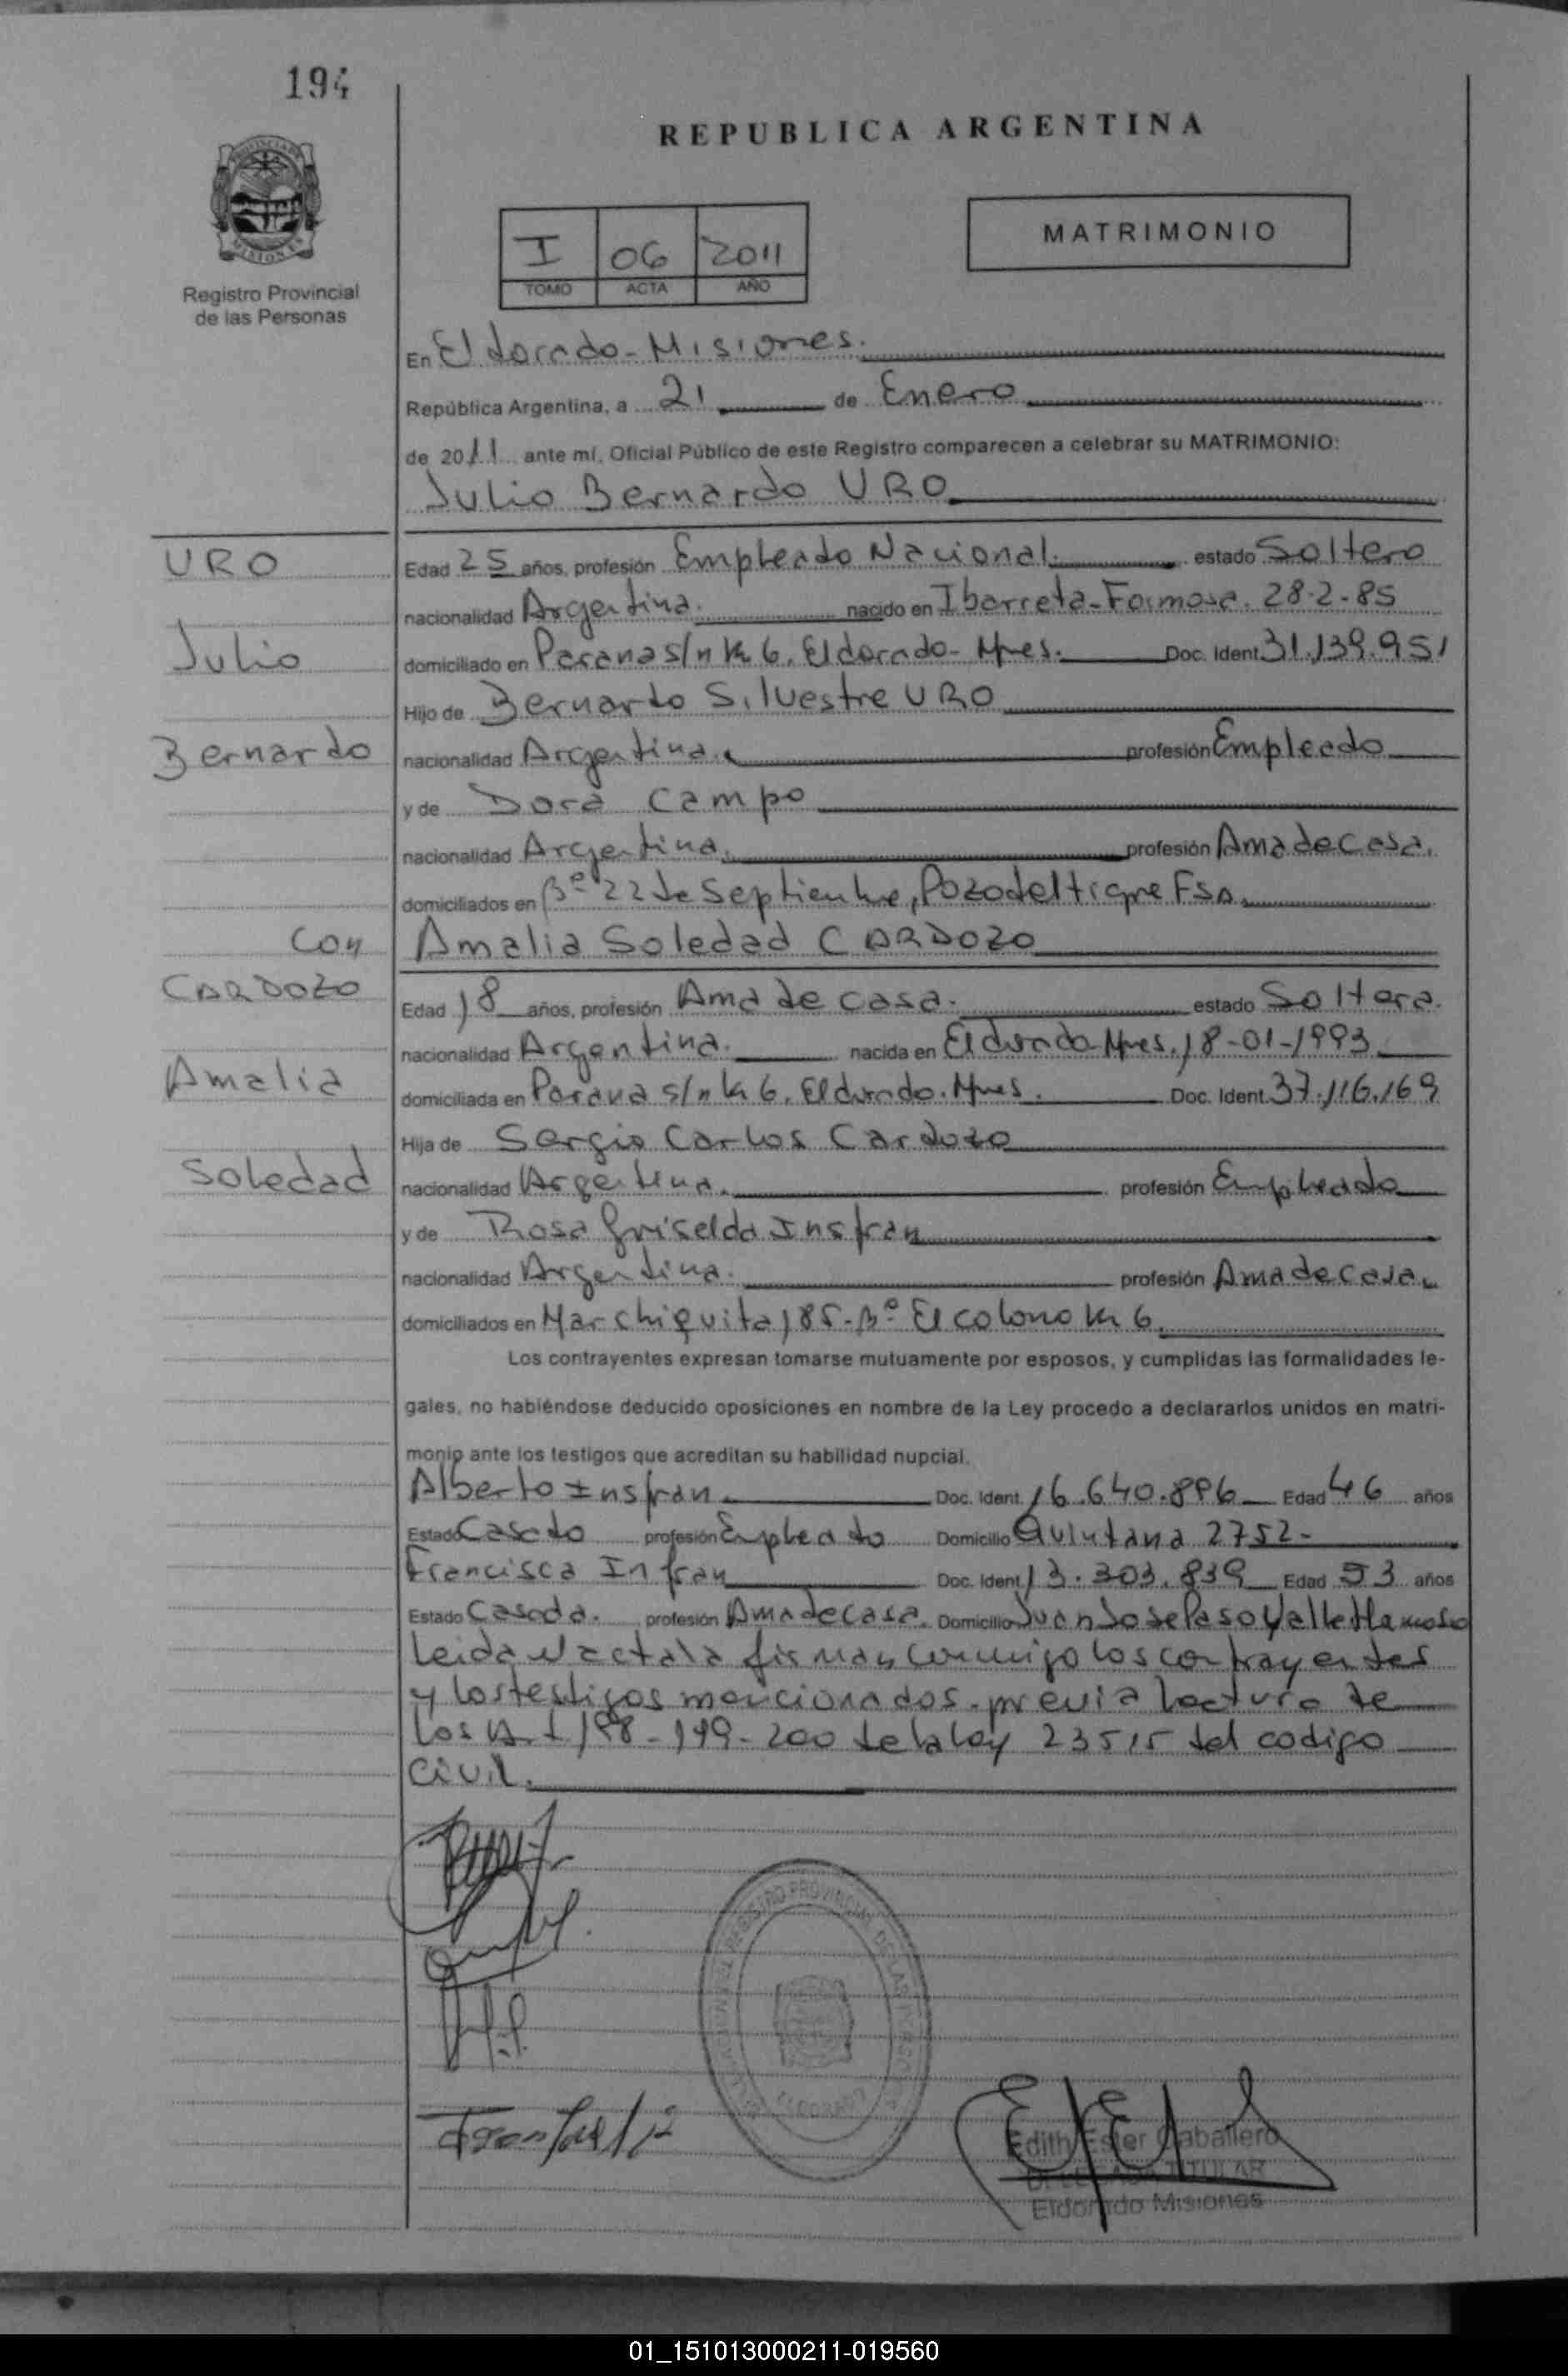 194
REPUBLICA ARGENTINA
MATRIMONIO
I 06 2011
TOMO ACTA AÑO
Registro Provincial
de las Personas
En Eldorado - Misiones.
República Argentina, a 21 de Enero
de 2011 ante mí, Oficial Público de este Registro comparecen a celebrar su MATRIMONIO:
Julio Bernardo URO
URO
Edad 25 años, profesión Empleado Nacional. estado Soltero
nacionalidad Argentina. nacido en Ibarreta-Formosa. 28-2-85
Julio
domiciliado en Parana s/n Km 6, Eldorado- Mnes. Doc. Ident. 31.139.951
Hijo de Bernardo Silvestre URO
Bernardo
nacionalidad Argentina. profesión Empleado
y de Dora Campo
nacionalidad Argentina. profesión Ama de Casa.
domiciliados en Bº 22 de Septiembre, Pozo del tigre FSA.
con Amalia Soledad CARDOZO
CARDOZO
Edad 18 años, profesión Ama de casa. estado Soltera.
nacionalidad Argentina. nacida en Eldorado Mnes. 18-01-1993
Amalia
domiciliada en Parana s/n Km 6, Eldorado. Mnes. Doc. Ident. 37.116.169
Hija de Sergio Carlos Cardozo
Soledad
nacionalidad Argentina. profesión Empleado
y de Rosa Griselda Insfran
nacionalidad Argentina. profesión Ama de Casa.
domiciliados en Mar chiquita 185 - Bº El colono Km 6.
Los contrayentes expresan tomarse mutuamente por esposos, y cumplidas las formalidades le-
gales, no habiéndose deducido oposiciones en nombre de la Ley procedo a declararlos unidos en matri-
monio ante los testigos que acreditan su habilidad nupcial.
Alberto Insfran Doc. Ident. 16.640.896 Edad 46 años
Estado Casado profesión Empleado Domicilio Quintana 2752-
Francisca Infran Doc. Ident. 13.303.839 Edad 53 años
Estado Casada. profesión Ama de casa. Domicilio Juan Jose Paso Valle Hermoso
Leida el acta la firman conmigo los contrayentes
y los testigos mencionados. previa lectura de
los Art 198-199-200 de la ley 23515 del codigo
Civil.
REGISTRO PROVINCIAL DE LAS PERSONAS
ELDORADO
Edith Ester Caballero
DELEGADA TITULAR
Eldorado Misiones
01_151013000211-019560